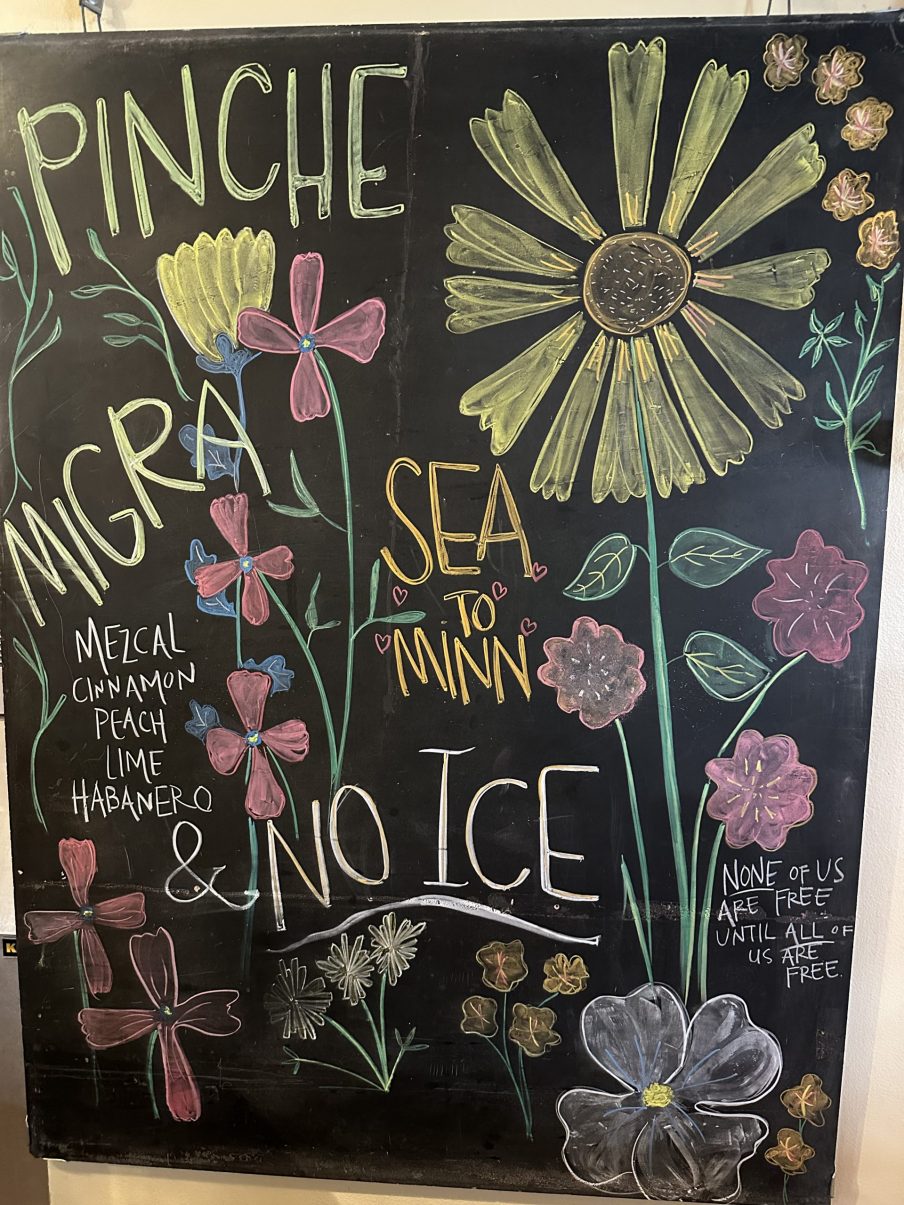 PINCHE
MIGRA
SEA
TO
MINN
MEZCAL
CINNAMON
PEACH
LIME
HABANERO
& NO ICE
NONE OF US
ARE FREE
UNTIL ALL OF
US ARE
FREE.